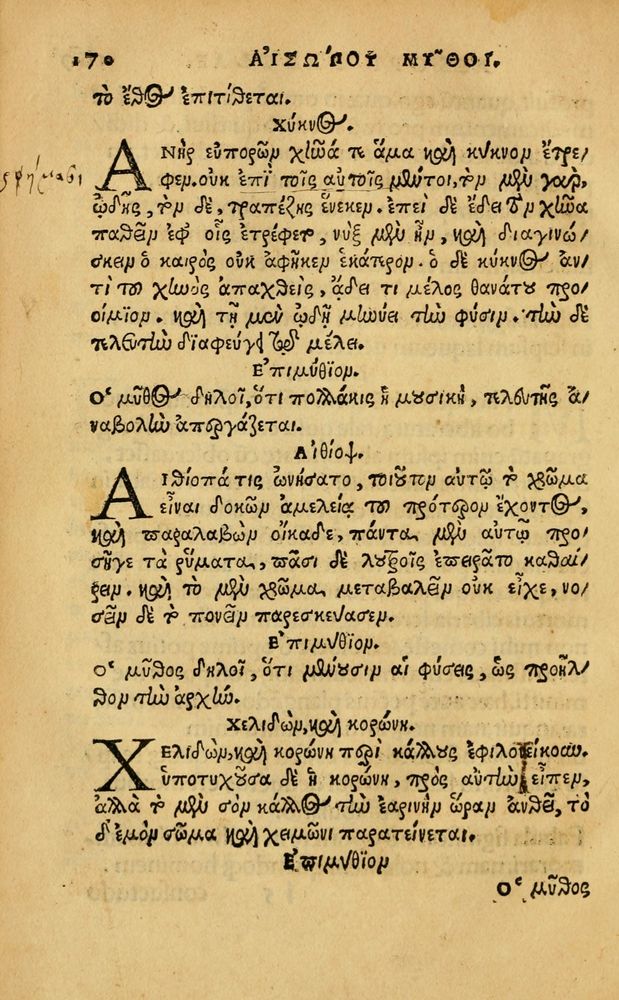 170 ΑΙΣΩΠΟΥ ΜΥΘΟΙ.
τὸ ἔθος ἐπιτίθεται.
Χύκνος.
ΑΝὴρ εὐπορῶν χῆνά τε ἅμα καὶ κύκνον ἔτρε/
φεν. οὐκ ἐπὶ τοῖς αὐτοῖς μέντοι, τὸν μὲν γὰρ,
ᾠδῆς, τὸν δὲ, τραπέζης ἕνεκεν. ἐπεὶ δὲ ἔδει τὸν χῆνα
παθεῖν ἐφ' οἷς ἐτρέφετο, νὺξ μὲν ἦν, καὶ διαγινώ/
σκειν ὁ καιρὸς οὐκ ἀφῆκεν ἑκάτερον. ὁ δὲ κύκνος ἀν/
τὶ τοῦ χηνὸς ἀπαχθεὶς, ᾄδει τι μέλος θανάτου προ/
οίμιον. καὶ τῇ μὲν ᾠδῇ μηνύει τὴν φύσιν. τὴν δὲ
τελευτὴν διαφεύγει τῷ μέλει.
Ἐπιμύθιον.
Ὁ μῦθος δηλοῖ, ὅτι πολλάκις ἡ μουσικὴ, τελευτῆς ἀ/
ναβολὴν ἀπεργάζεται.
Αἰθίοψ.
ΑΙθίοπά τις ὠνήσατο, τοιοῦτον αὐτῷ τὸ χρῶμα
εἶναι δοκῶν ἀμελείᾳ τοῦ πρότερον ἔχοντος,
καὶ παραλαβὼν οἴκαδε, πάντα μὲν αὐτῷ προ/
σῆγε τὰ ῥύματα, πᾶσι δὲ λουτροῖς ἐπειρᾶτο καθαί/
ρειν. καὶ τὸ μὲν χρῶμα μεταβαλεῖν οὐκ εἶχε, νο/
σεῖν δὲ τὸ πονεῖν παρεσκεύασεν.
Ἐπιμύθιον.
Ὁ μῦθος δηλοῖ, ὅτι μένουσιν αἱ φύσεις, ὡς προῆλ/
θον τὴν ἀρχήν.
Χελιδὼν, καὶ κορώνη.
ΧΕλιδὼν, καὶ κορώνη περὶ κάλλους ἐφιλονείκουν.
ὑποτυχοῦσα δὲ ἡ κορώνη, πρὸς αὐτὴν εἶπεν,
ἀλλὰ τὸ μὲν σὸν κάλλος τὴν ἐαρινὴν ὥραν ἀνθεῖ, τὸ
δ' ἐμὸν σῶμα καὶ χειμῶνι παρατείνεται.
Ἐπιμύθιον
Ὁ μῦθος